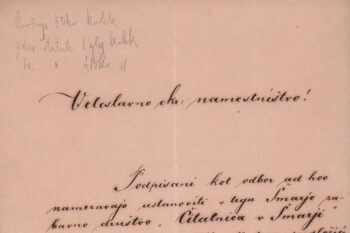 kolek
1 glej kolek
"
Veleslavno ckr. namestništvo!
Podpisani kot odbor ad hoc
nameravajo ustanoviti v trgu Šmarje za-
bavno društvo „Čitalnica v Šmarji"